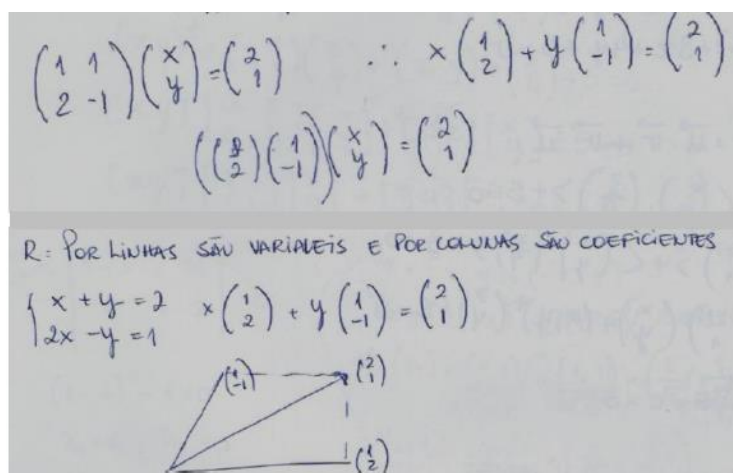 (1 1
2 -1) (x
y) = (2
1) ∴ x (1
2) + y (1
-1) = (2
1)
((1
2) (1
-1)) (x
y) = (2
1)
R: POR LINHAS SÃO VARIÁVEIS E POR COLUNAS SÃO COEFICIENTES
{ x + y = 2
2x - y = 1 x (1
2) + y (1
-1) = (2
1)
(1
-1) (2
1)
(1
2)